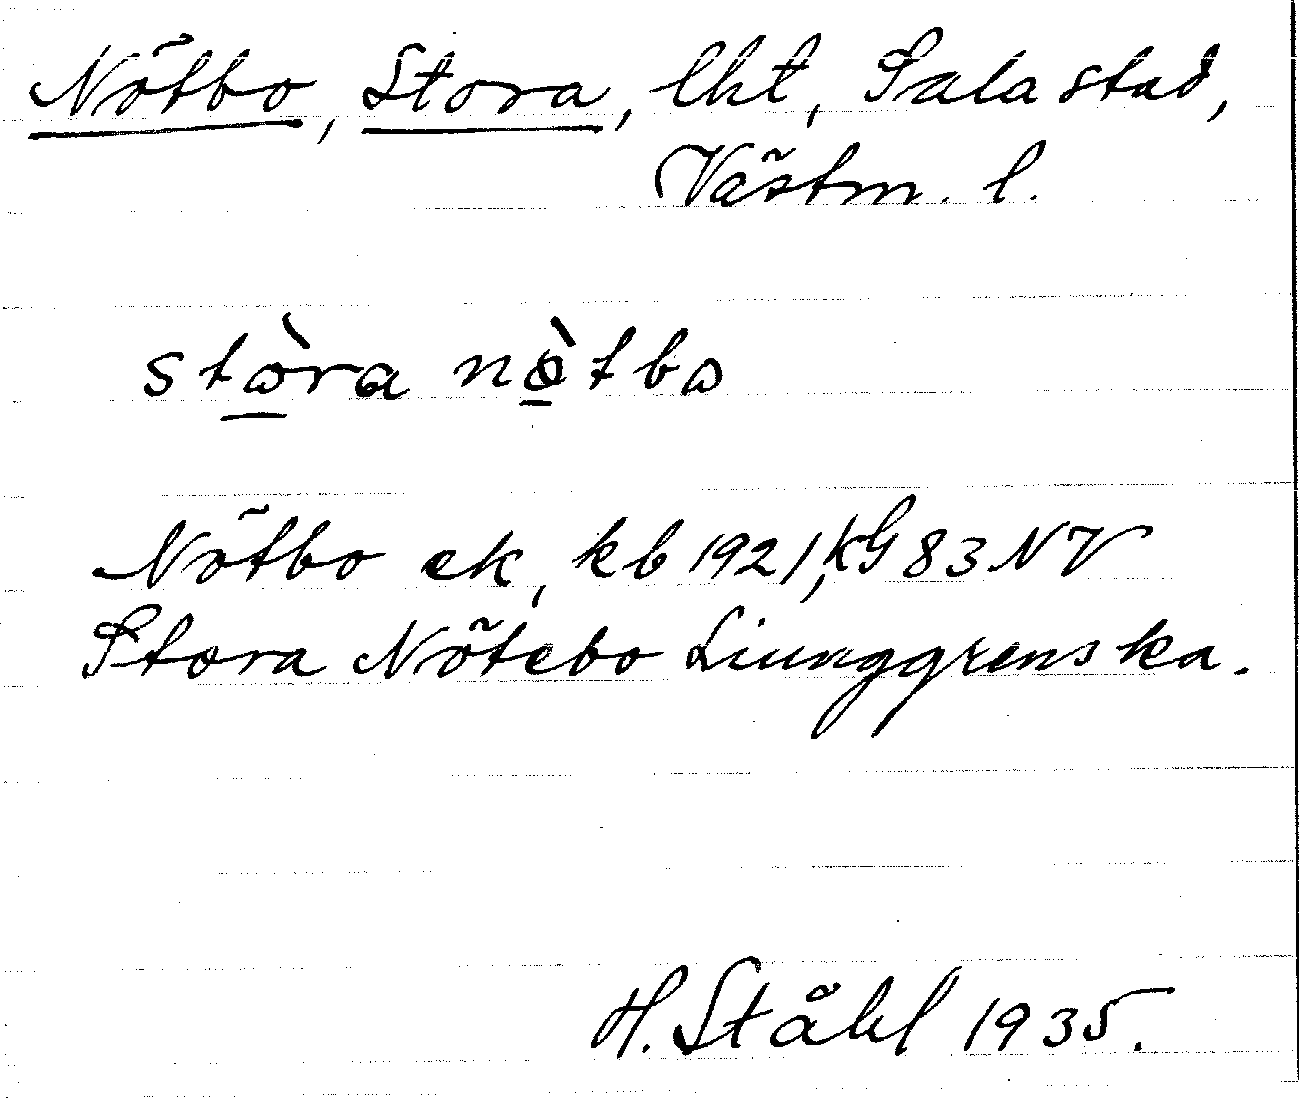 Nötbo, Stora, lht, Sala stad,
Västm. l.
stòra nø̀tbo
Nötbo ek, kb 1921, kG 83 NV
Stora Nötebo Liunggrenska.
H. Ståhl 1935.